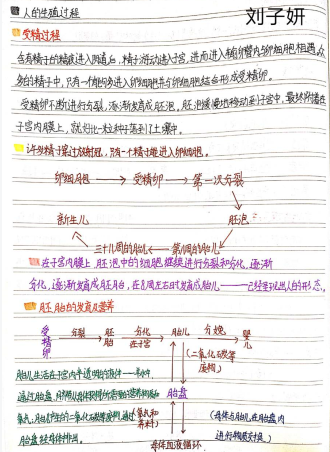 人的生殖过程
刘子妍
受精过程
含有精子的精液进入阴道后，精子游动进入子宫，进而进入输卵管内与卵细胞相遇，众
多的精子中，只有一个能够进入卵细胞并与卵细胞结合形成受精卵。
受精卵不断进行分裂，逐渐发育成胚泡，胚泡缓慢地移动到子宫中，最终附着在
子宫内膜上，就好比一粒种子落到了土壤中。
许多精子穿过放射冠，只有一个精子能进入卵细胞。
卵细胞 → 受精卵 → 第一次分裂
新生儿 胚泡
三十八周的胎儿 ← 第八周的胎儿
在子宫内膜上，胚泡中的细胞继续进行分裂和分化，逐渐
分化，逐渐发育成胚胎，在8周左右时发育成胎儿——已经呈现出人的形态。
胚胎的发育及营养
受精卵 分裂→ 胚胎 分化→ 在子宫 胎儿 分娩→ 婴儿
(二氧化碳等废物)
胎儿生活在子宫内半透明的液体——羊水中，
通过胎盘、 胎盘
(氧气和养料)
(母体与胎儿在胎盘内
进行物质交换)
胎盘经母体排出。
母体血液循环